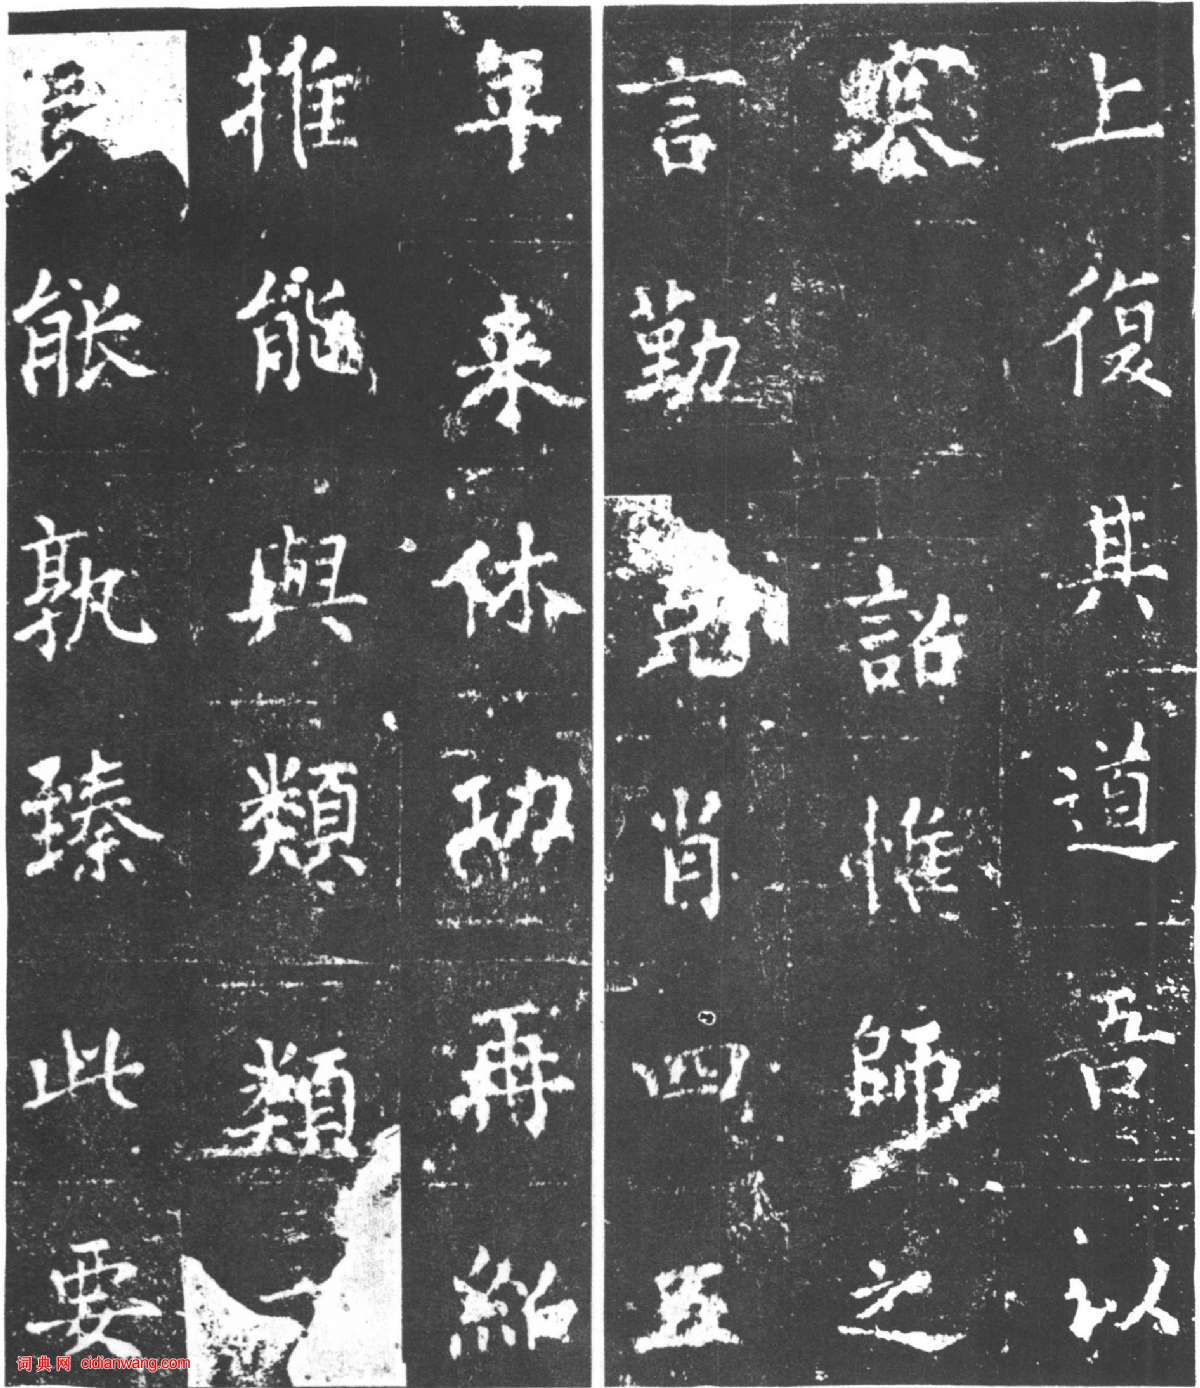 上復其道吾以
詔惟師之
言勤肖四五
年来休功再紹
推能與類類
良能孰臻此要
词典网 cidianwang.com